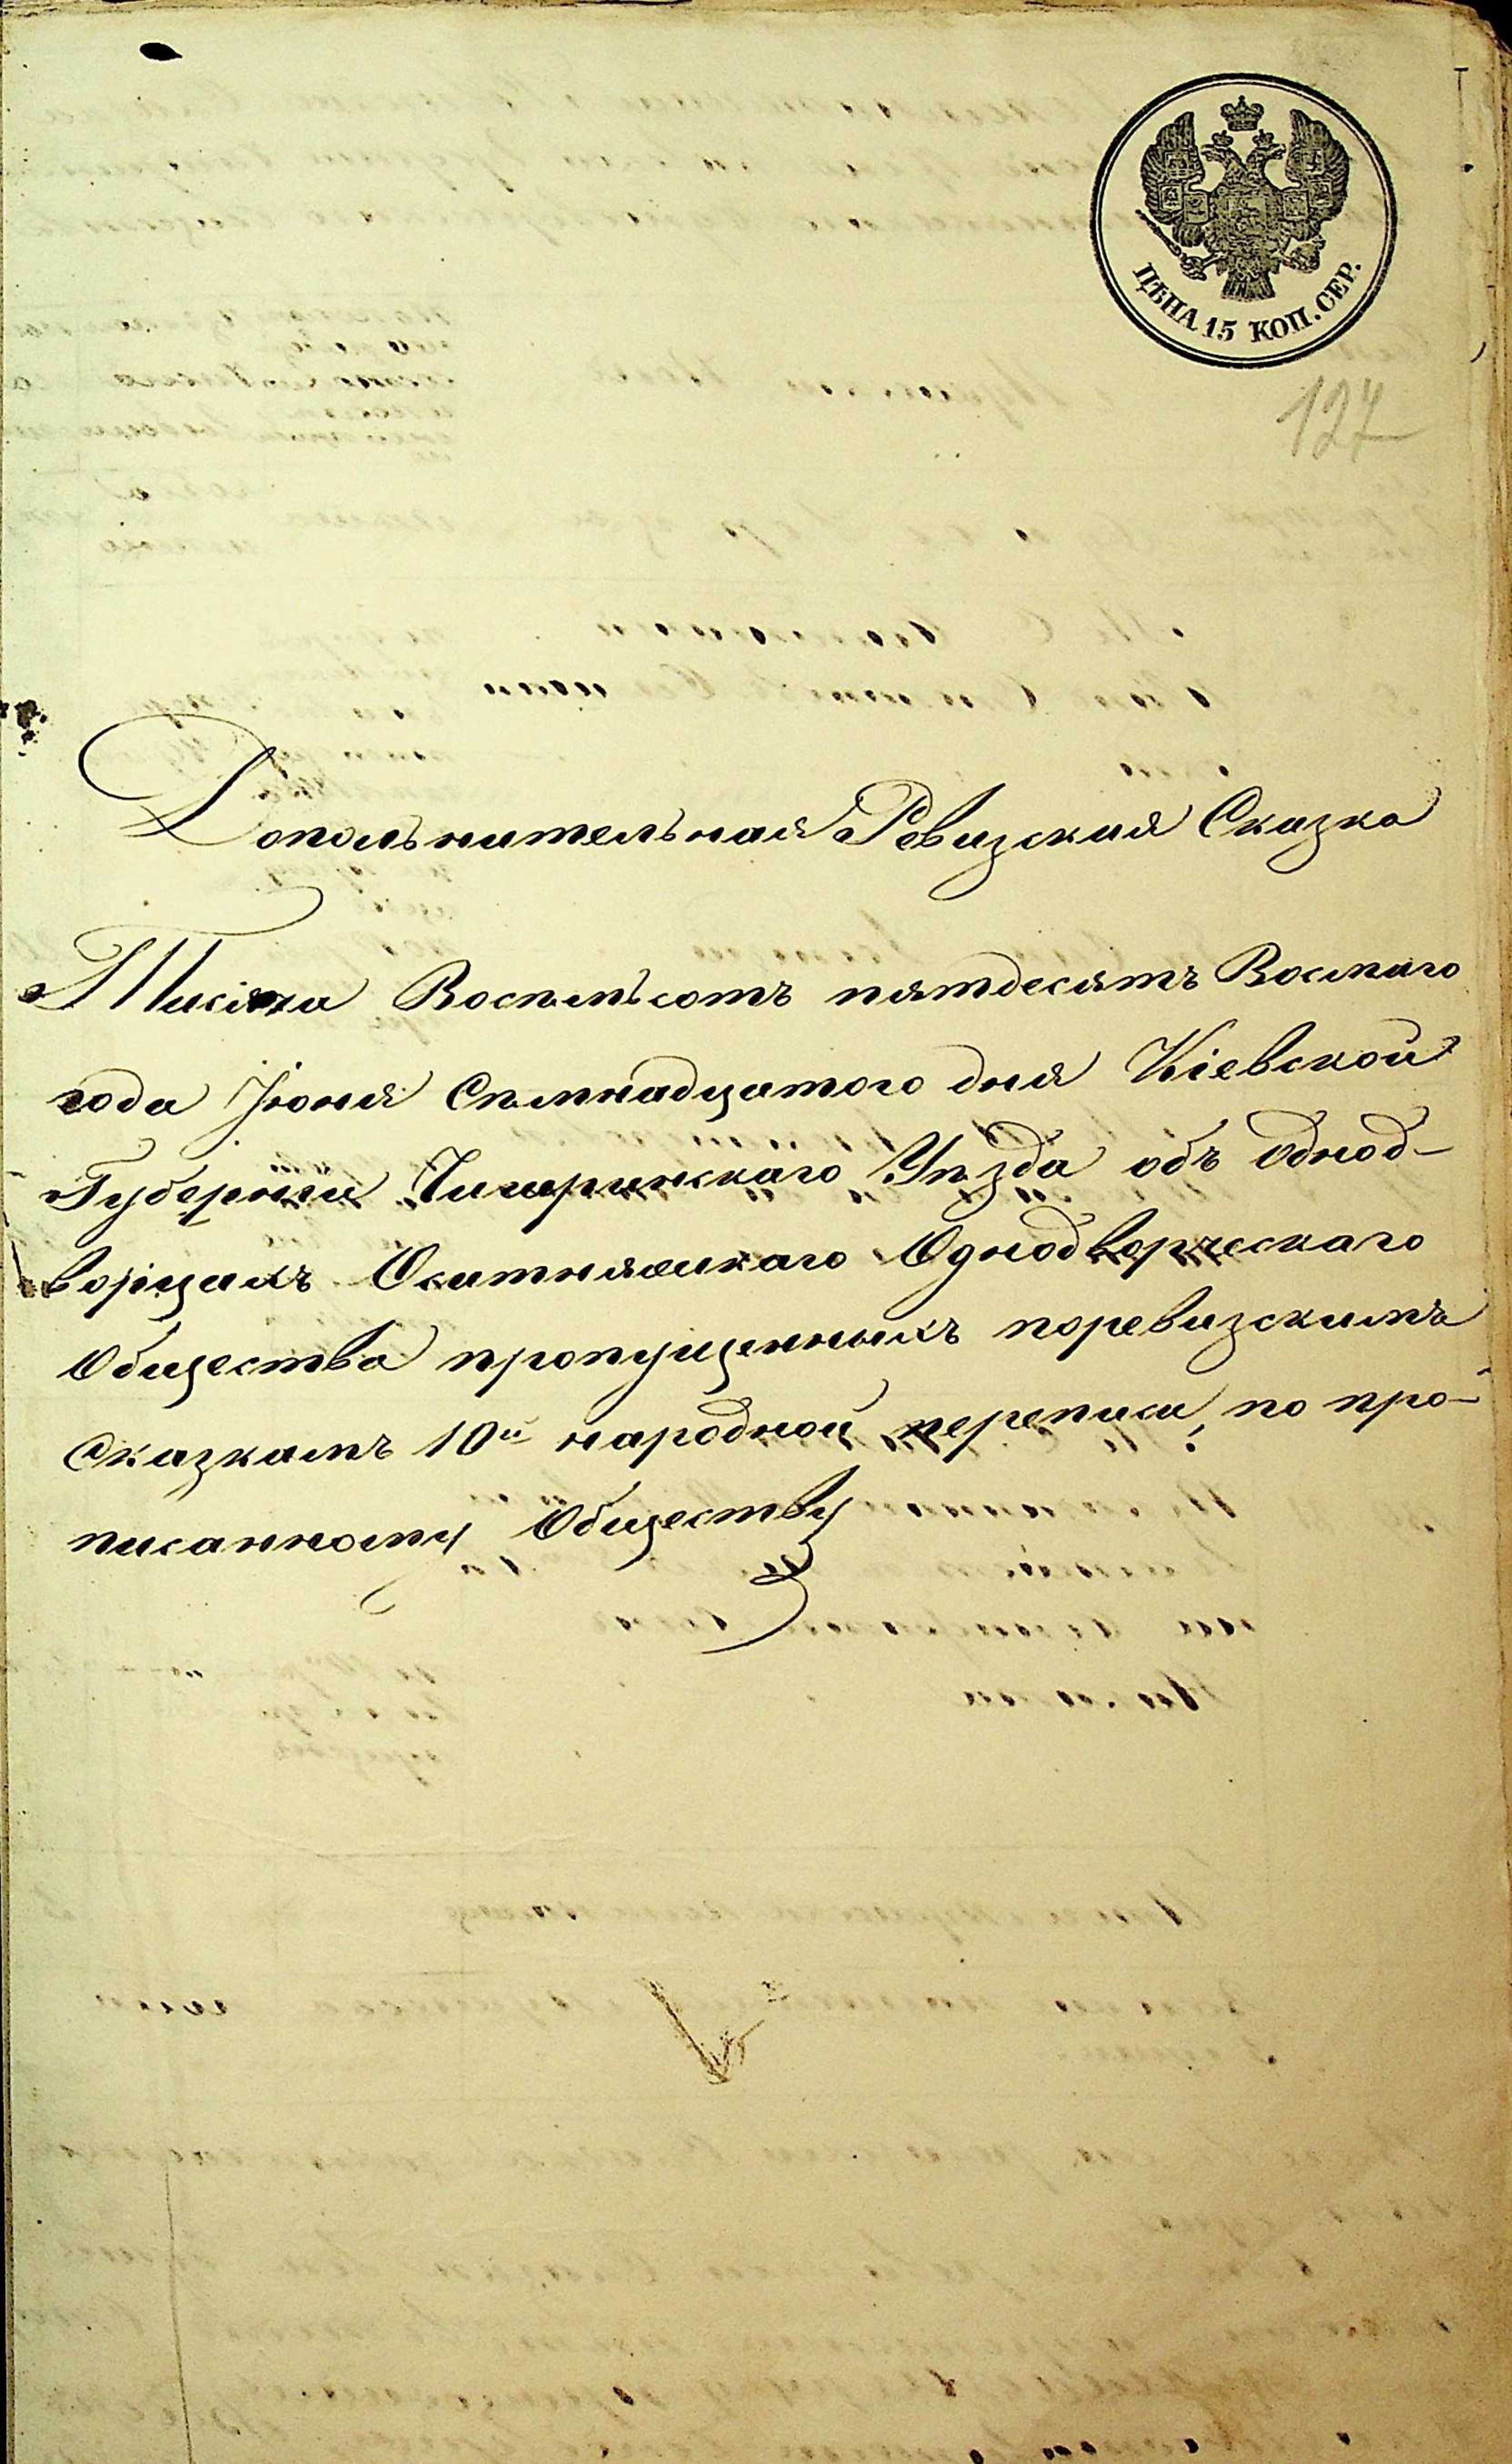 ЦѢНА 15 КОП. СЕР.
127
Дополнительная Ревизская Сказка
Тисяча Восемьсотъ пятдесятъ Восмаго
года Іюня Семнадцатого дня Кіевской
Губерніи Чигиринскаго Уѣзда объ однод-
ворцахъ Оситняжскаго Однодворческаго
Общества пропущенныхъ поревизскимъ
Сказкамъ 10й народной переписи, по про-
писанному Обществу